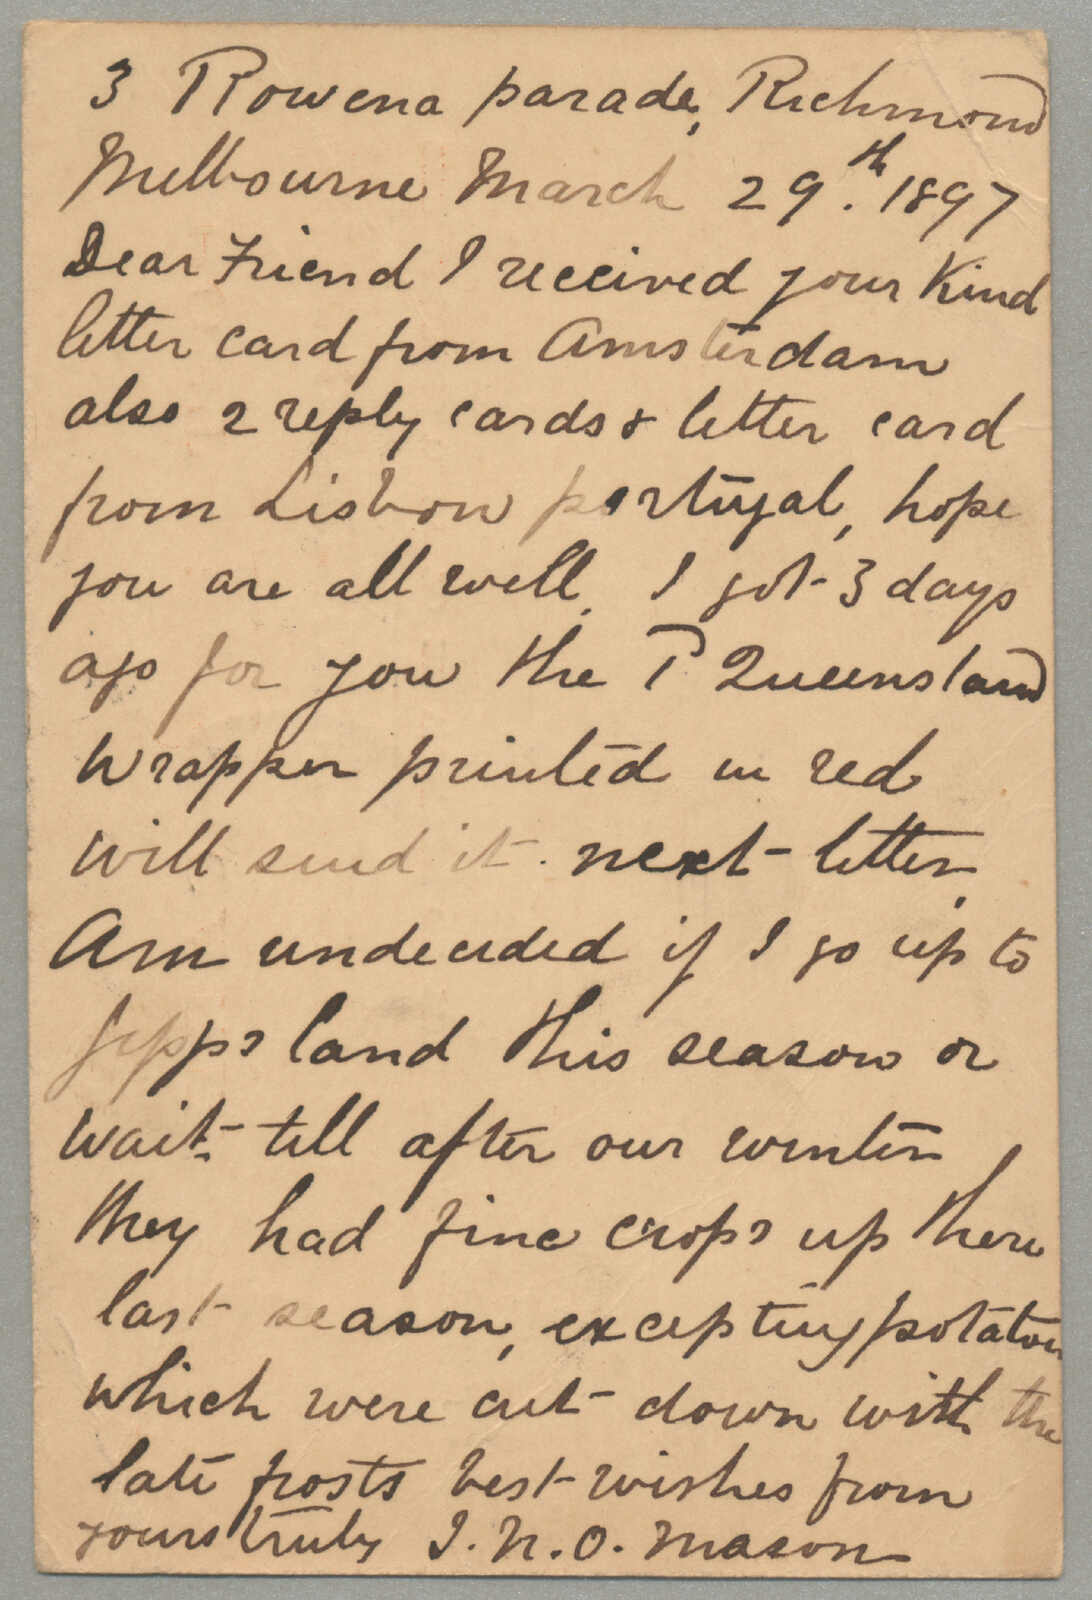 3 Rowena parade, Richmond
Melbourne March 29th. 1897
Dear Friend I received your Kind
letter card from Amsterdam
also 2 reply cards & letter card
from Lisbon portugal, hope
you are all well. I got 3 days
ago for you the P Queensland
wrapper printed in red
will send it. next letter.
Am undecided if I go up to
gipps land this season or
wait till after our winter
they had fine crops up there
last season, excepting potatoes
which were cut down with the
late frosts best wishes from
yours truly J. N. O. Mason